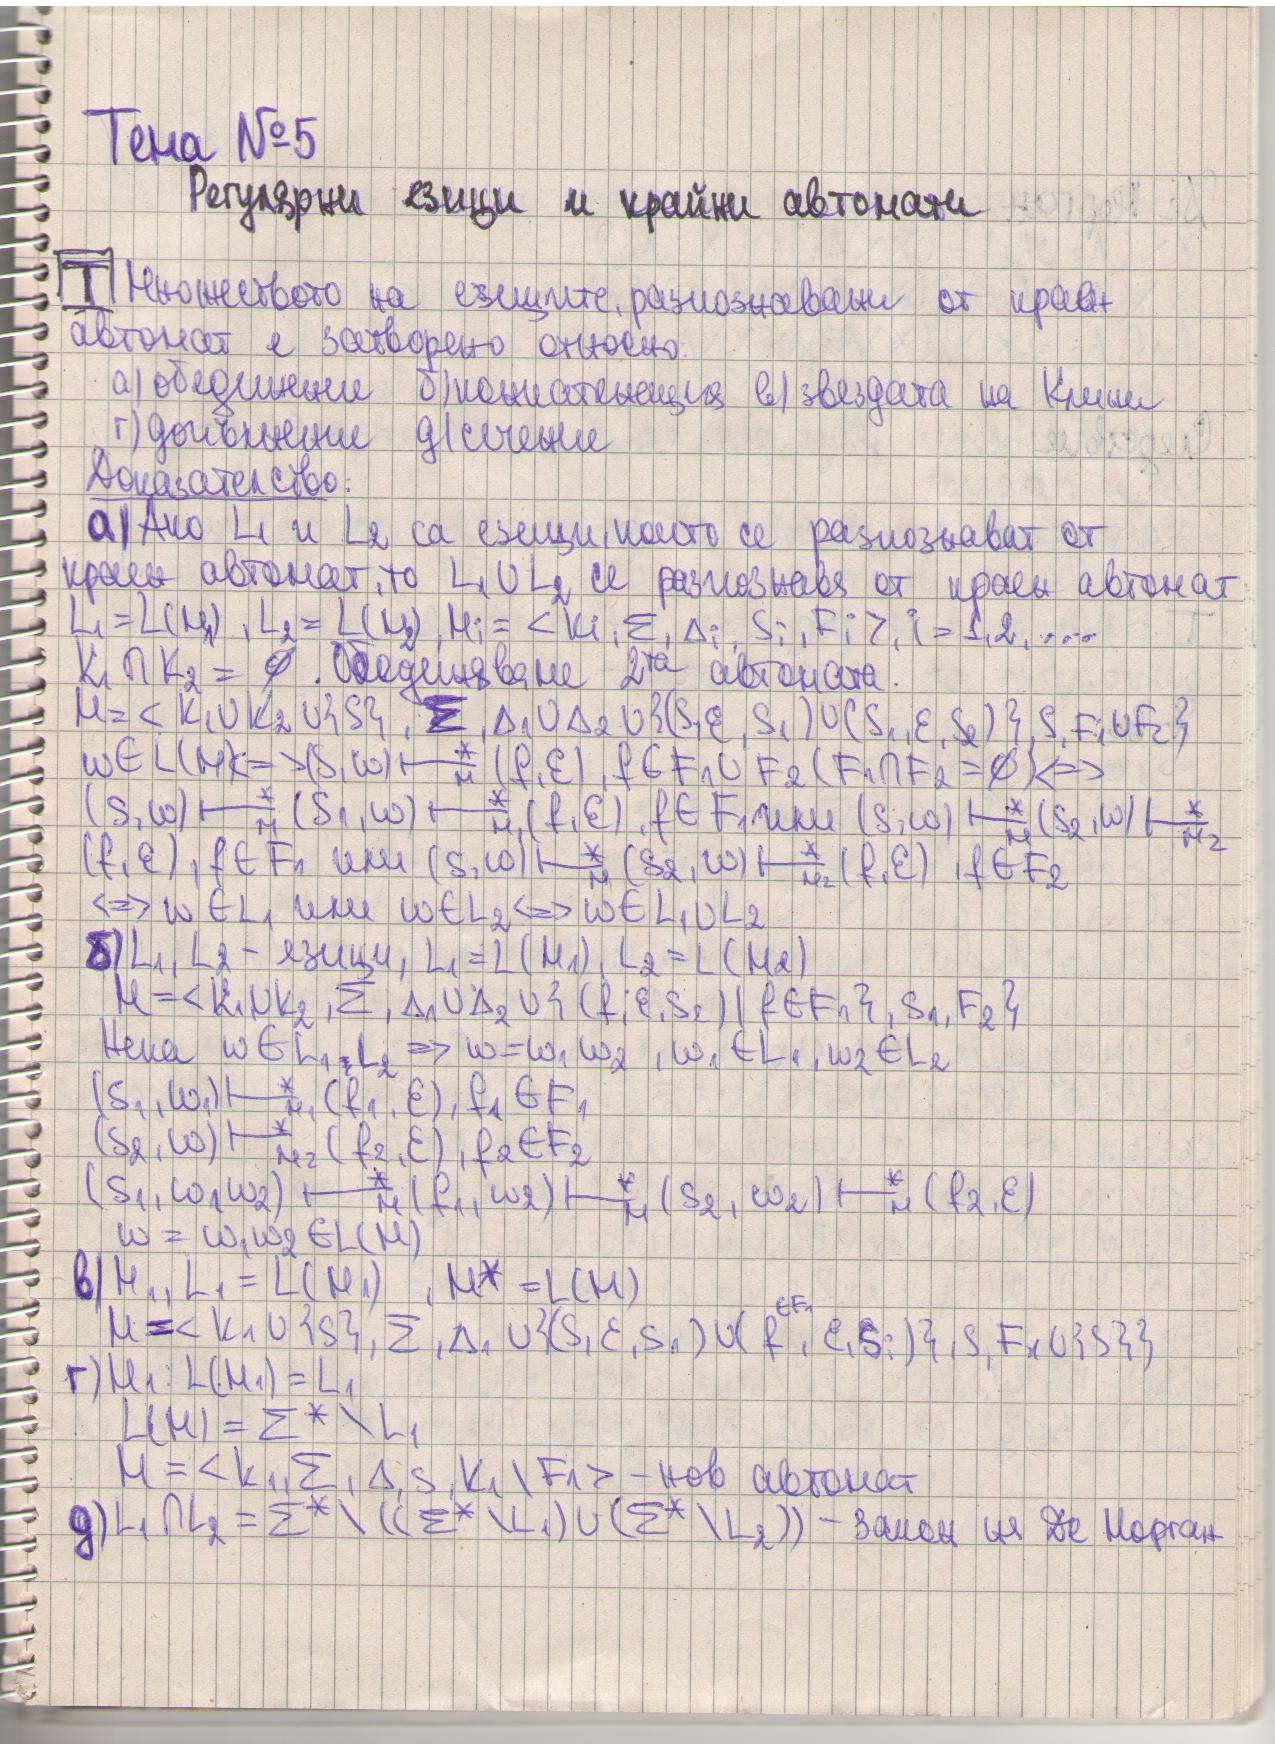 Тема №5
Регулярни езици и крайни автомати
Т Множеството на езиците, разпознавани от краен
автомат е затворено относно:
а) обединение б) конкатенация в) звездата на Клини
г) допълнение д) сечение
Доказателство:
а) Ако L₁ и L₂ са езици, които се разпознават от
краен автомат, то L₁∪L₂ се разпознава от краен автомат
L₁=L(M₁), L₂=L(M₂), Mᵢ=<Kᵢ, Σ, Δᵢ, Sᵢ, Fᵢ>, i=1,2,....
K₁∩K₂=∅. Обединяваме 2та автомата.
M=<K₁∪K₂∪{S}, Σ, Δ₁∪Δ₂∪{(S,ε,S₁)∪(S₁,ε,S₂)}, S, F₁∪F₂}
w∈L(M)<=>(S,w)⊢*M (f,ε), f∈F₁∪F₂ (F₁∩F₂=∅)<=>
(S,w)⊢*M (S₁,w)⊢*M₁ (f,ε), f∈F₁ или (S,w)⊢*M (S₂,w)⊢*M₂
(f,ε), f∈F₁ или (S,w)⊢*M (S₂,w)⊢*M₂ (f,ε), f∈F₂
<=>w∈L₁ или w∈L₂<=>w∈L₁∪L₂
б) L₁, L₂ - езици, L₁=L(M₁), L₂=L(M₂)
M=<K₁∪K₂, Σ, Δ₁∪Δ₂∪{(f,ε,S₂)|f∈F₁}, S₁, F₂}
Нека w∈L₁.L₂ => w=w₁w₂, w₁∈L₁, w₂∈L₂
(S₁,w₁)⊢*M₁ (f₁,ε), f₁∈F₁
(S₂,w)⊢*M₂ (f₂,ε), f₂∈F₂
(S₁,w₁w₂)⊢*M (f₁,w₂)⊢*M (S₂,w₂)⊢*M (f₂,ε)
w=w₁w₂∈L(M)
в) M₁, L₁=L(M₁), M*=L(M)
M=<K₁∪{S}, Σ, Δ₁∪{(S,ε,S₁)∪(f∈F₁,ε,Sᵢ)}, S, F₁∪{S}}
г) M₁: L(M₁)=L₁
L(M)=Σ*\L₁
M=<K₁, Σ, Δ, S, K₁\F₁> - нов автомат
д) L₁∩L₂=Σ*\((Σ*\L₁)∪(Σ*\L₂)) - закон на Де Морган